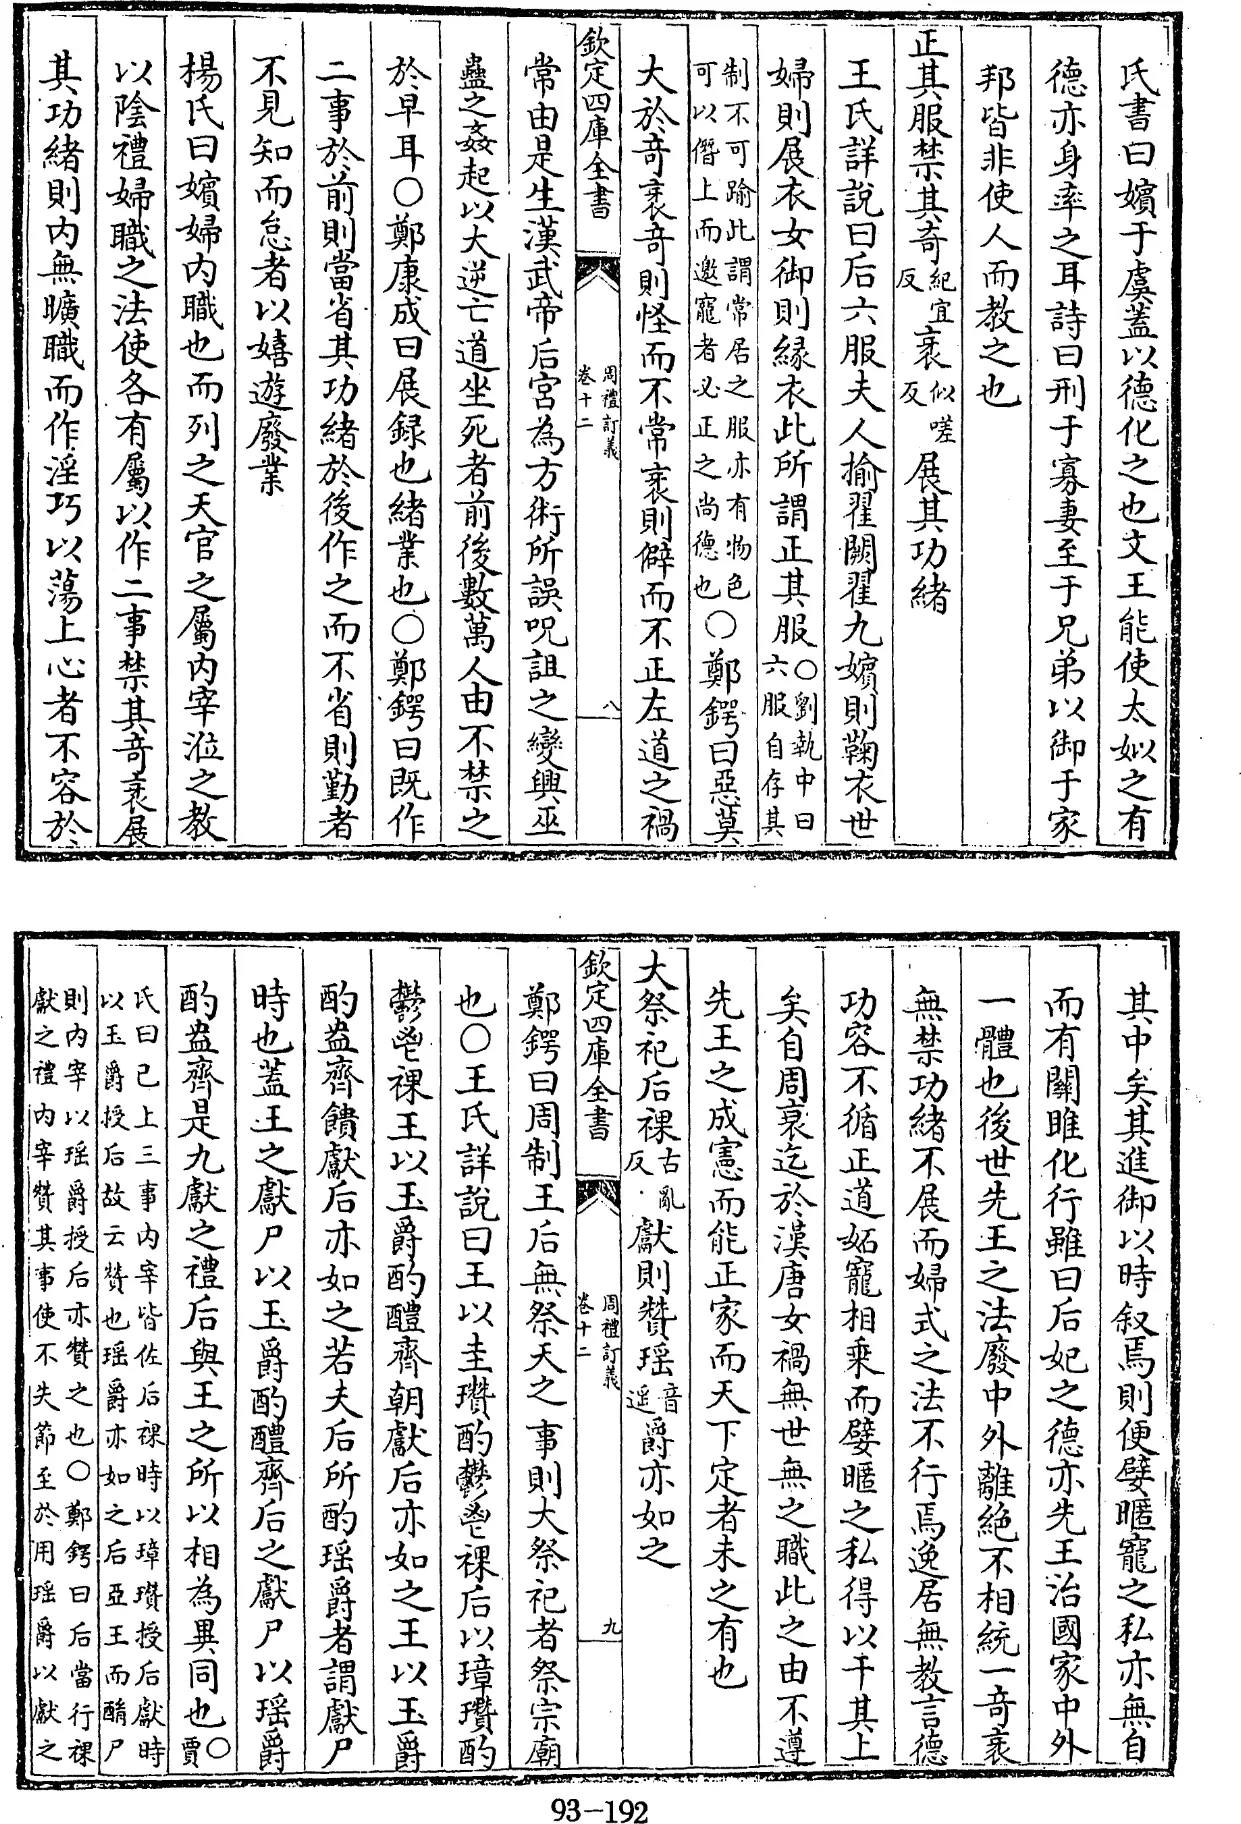 氏書曰嬪于虞蓋以德化之也文王能使太姒之有
德亦身率之耳詩曰刑于寡妻至于兄弟以御于家
邦皆非使人而教之也
正其服禁其奇紀宜反衺似嗟反展其功緒
王氏詳說曰后六服夫人揄翟闕翟九嬪則鞠衣世
婦則展衣女御則緣衣此所謂正其服○劉執中曰六服自存其
制不可踰此謂常居之服亦有物色可以僭上而邀寵者必正之尚德也○鄭鍔曰惡莫
大於奇衺奇則怪而不常衺則僻而不正左道之禍
欽定四庫全書
周禮訂義
卷十二
八
常由是生漢武帝后宮為方術所誤呪詛之變興巫
蠱之姦起以大逆亡道坐死者前後數萬人由不禁之
於早耳○鄭康成曰展録也緒業也○鄭鍔曰既作
二事於前則當省其功緒於後作之而不省則勤者
不見知而怠者以嬉遊廢業
楊氏曰嬪婦內職也而列之天官之屬內宰涖之教
以陰禮婦職之法使各有屬以作二事禁其奇衺展
其功緒則內無曠職而作淫巧以蕩上心者不容於
其中矣其進御以時叙焉則便嬖暱寵之私亦無自
而有關雎化行雖曰后妃之德亦先王治國家中外
一體也後世先王之法廢中外離絶不相統一奇衺
無禁功緒不展而婦式之法不行焉逸居無教言德
功容不循正道妬寵相乘而嬖暱之私得以干其上
矣自周衰迄於漢唐女禍無世無之職此之由不遵
先王之成憲而能正家而天下定者未之有也
大祭祀后祼古亂反獻則贊瑶音遥爵亦如之
欽定四庫全書
周禮訂義
卷十二
九
鄭鍔曰周制王后無祭天之事則大祭祀者祭宗廟
也○王氏詳說曰王以圭瓚酌鬱鬯祼后以璋瓚酌
鬱鬯祼王以玉爵酌醴齊朝獻后亦如之王以玉爵
酌盎齊饋獻后亦如之若夫后所酌瑶爵者謂獻尸
時也蓋王之獻尸以玉爵酌醴齊后之獻尸以瑶爵
酌盎齊是九獻之禮后與王之所以相為異同也○賈
氏曰已上三事內宰皆佐后祼時以璋瓚授后獻時
以玉爵授后故云贊也瑶爵亦如之后亞王而酳尸
則內宰以瑶爵授后亦贊之也○鄭鍔曰后當行祼
獻之禮內宰贊其事使不失節至於用瑶爵以獻之
93-192